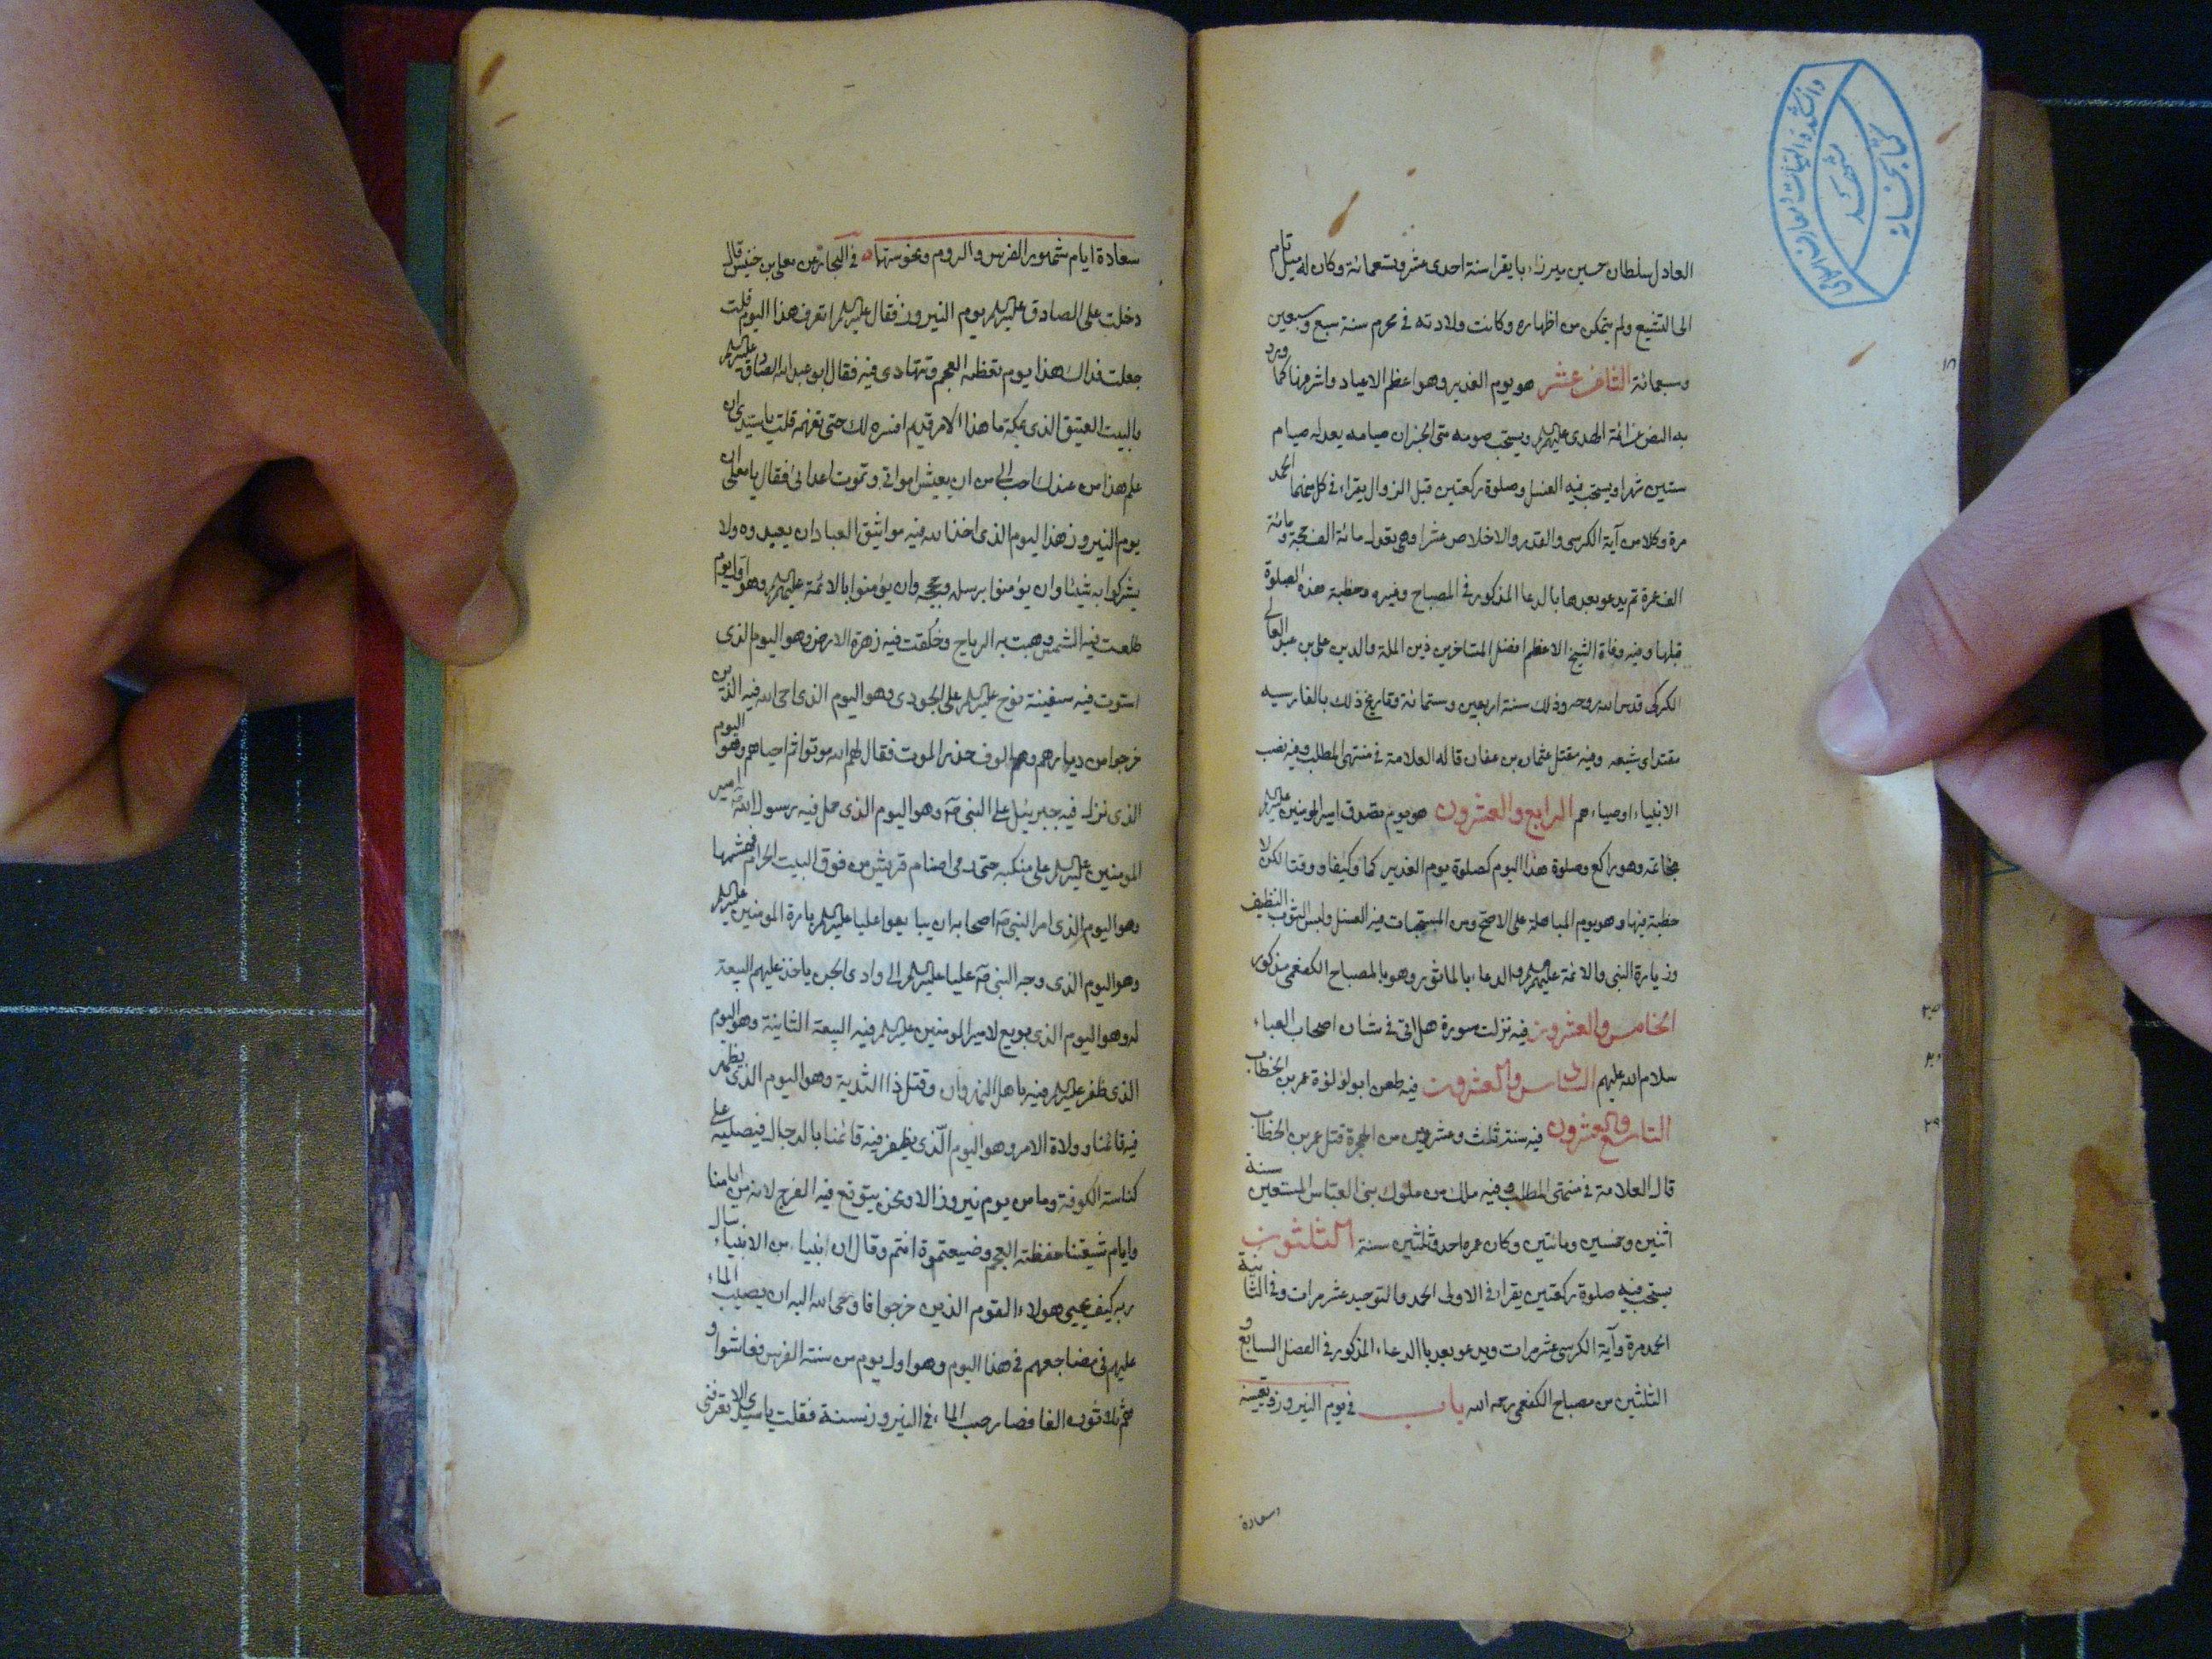 كتابخانه
دانشكده الهيات و معارف اسلامى
مشهد
العادل سلطان حسين ميرزا بايقرا سنة احدى عشر وتسعمائة وكان له ميل تام
الى التشيع ولم يتمكن من اظهاره وكانت ولادته فى محرم سنة سبع وسبعين
١٨
وسبعمائة الثامن عشر هو يوم الغدير وهو اعظم الاعياد واشرفها كما ورد
به النص عن ائمة الهدى عليهم ويستحب صومه حتى الخبر ان صيامه يعدل صيام
ستين شهرا ويستحب فيه الغسل وصلوة ركعتين قبل الزوال يقراء فى كل منهما الحمد
مرة وكلا من آية الكرسى والقدر والاخلاص عشرا وهى تعدل مائة الف حجة ومائة
الف عمرة ثم يدعو بعدها بالدعا المذكور فى المصباح وغيره وخطبة هذه الصلوة
قبلها وفيه وفاة الشيخ الاعظم افضل المتاخرين زين الملة والدين على بن عبد العالى
الكركى قدس الله روحه وذلك سنة اربعين وستمائة وتاريخ ذلك بالفارسيه
مقتداى شيعه وفيه مقتل عثمان بن عفان قاله العلامة فى منتهى المطلب وفيه نصب
الانبياء اوصياءهم الرابع والعشرون هو يوم تصدق امير المومنين عليه
بخاتمه وهو راكع وصلوة هذا اليوم كصلوة يوم الغدير كما وكيفا ووقتا لكن لا
خطبة فيها وهو يوم المباهلة على الاصح ومن المستحبات فيه الغسل ولبس الثوب النظيف
وزيارة النبى والائمة عليهم والدعاء بالماثور وهو بالمصباح الكفعمى مذكور
٢٥
الخامس والعشرون فيه نزلت سورة هل اتى فى شان اصحاب العباء
سلام الله عليهم السادس والعشرون فيه طعن ابو لؤلؤة عمر بن الخطاب
٢٩
التاسع والعشرون فيه سنة ثلث وعشرين من الهجرة قتل عمر بن الخطاب
قال العلامة فى منتهى المطلب وفيه ملك من ملوك بنى العباس المستعين سنة
اثنين وخمسين ومائتين وكان عمره احد وثلثين سنة الثلثون
يستحب فيه صلوة ركعتين يقرا فى الاولى الحمد والتوحيد عشر مرات وفى الثانية
الحمد مرة وآية الكرسى عشر مرات ويدعو بعدها الدعاء المذكور فى الفصل السابع و
الثلثين من مصباح الكفعمى رحمه الله باب فى يوم النيروز وتعيينه
وسعادة
سعادة ايام شهور الفرس والروم ونحوستها فى البحار عن معلى بن خنيس قال
دخلت على الصادق عليه يوم النيروز فقال عليه اتعرف هذا اليوم قلت
جعلت فداك هذا يوم تعظمه العجم وتتهادى فيه فقال ابو عبد الله الصادق عليه
والبيت العتيق الذى بمكة ما هذا الا لامر قديم افسره لك حتى تفهمه قلت يا سيدى ان
علم هذا من عندك احب الى من ان يعيش امواتى وتموت اعدائى فقال يا معلى ان
يوم النيروز هذا اليوم الذى اخذ الله فيه مواثيق العباد ان يعبدوه ولا
يشركوا به شيئا وان يؤمنوا برسله وحججه وان يؤمنوا بالائمة عليهم وهو اول يوم
طلعت فيه الشمس وهبت به الرياح وخلقت فيه زهرة الارض وهو اليوم الذى
استوت فيه سفينة نوح عليه على الجودى وهو اليوم الذى احى الله فيه الذين
خرجوا من ديارهم وهم الوف حذر الموت فقال لهم الله موتوا ثم احياهم وهو اليوم
الذى نزل فيه جبرئيل على النبى ص وهو اليوم الذى حمل فيه رسول الله امير
المومنين عليه على منكبه حتى رمى اصنام قريش من فوق البيت الحرام فهشمها
وهو اليوم الذى امر النبى ص اصحابه ان يبايعوا عليا عليه بامرة المومنين عليه
وهو اليوم الذى وجه النبى ص عليا عليه الى وادى الجن ياخذ عليهم البيعة
له وهو اليوم الذى بويع لامير المومنين عليه فيه البيعة الثانية وهو اليوم
الذى ظفر عليه فيه باهل النهروان وقتل ذا الثدية وهو اليوم الذى يظهر
فيه قائمنا وولاة الامر وهو اليوم الذى يظفر فيه قائمنا بالدجال فيصلبه على
كناسة الكوفة وما من يوم نيروز الا ونحن نتوقع فيه الفرج لانه من ايامنا
وايام شيعتنا حفظته العجم وضيعتموه انتم وقال ان انبياء من الانبياء سال
ربه كيف يحيى هولاء القوم الذين خرجوا فاوحى الله اليه ان يصب الماء
عليهم فى مضاجعهم فى هذا اليوم وهو اول يوم من سنة الفرس فعاشوا و
هم ثلاثون الفا فصار صب الماء فى النيروز سنة فقلت يا سيدى الا تعرفنى